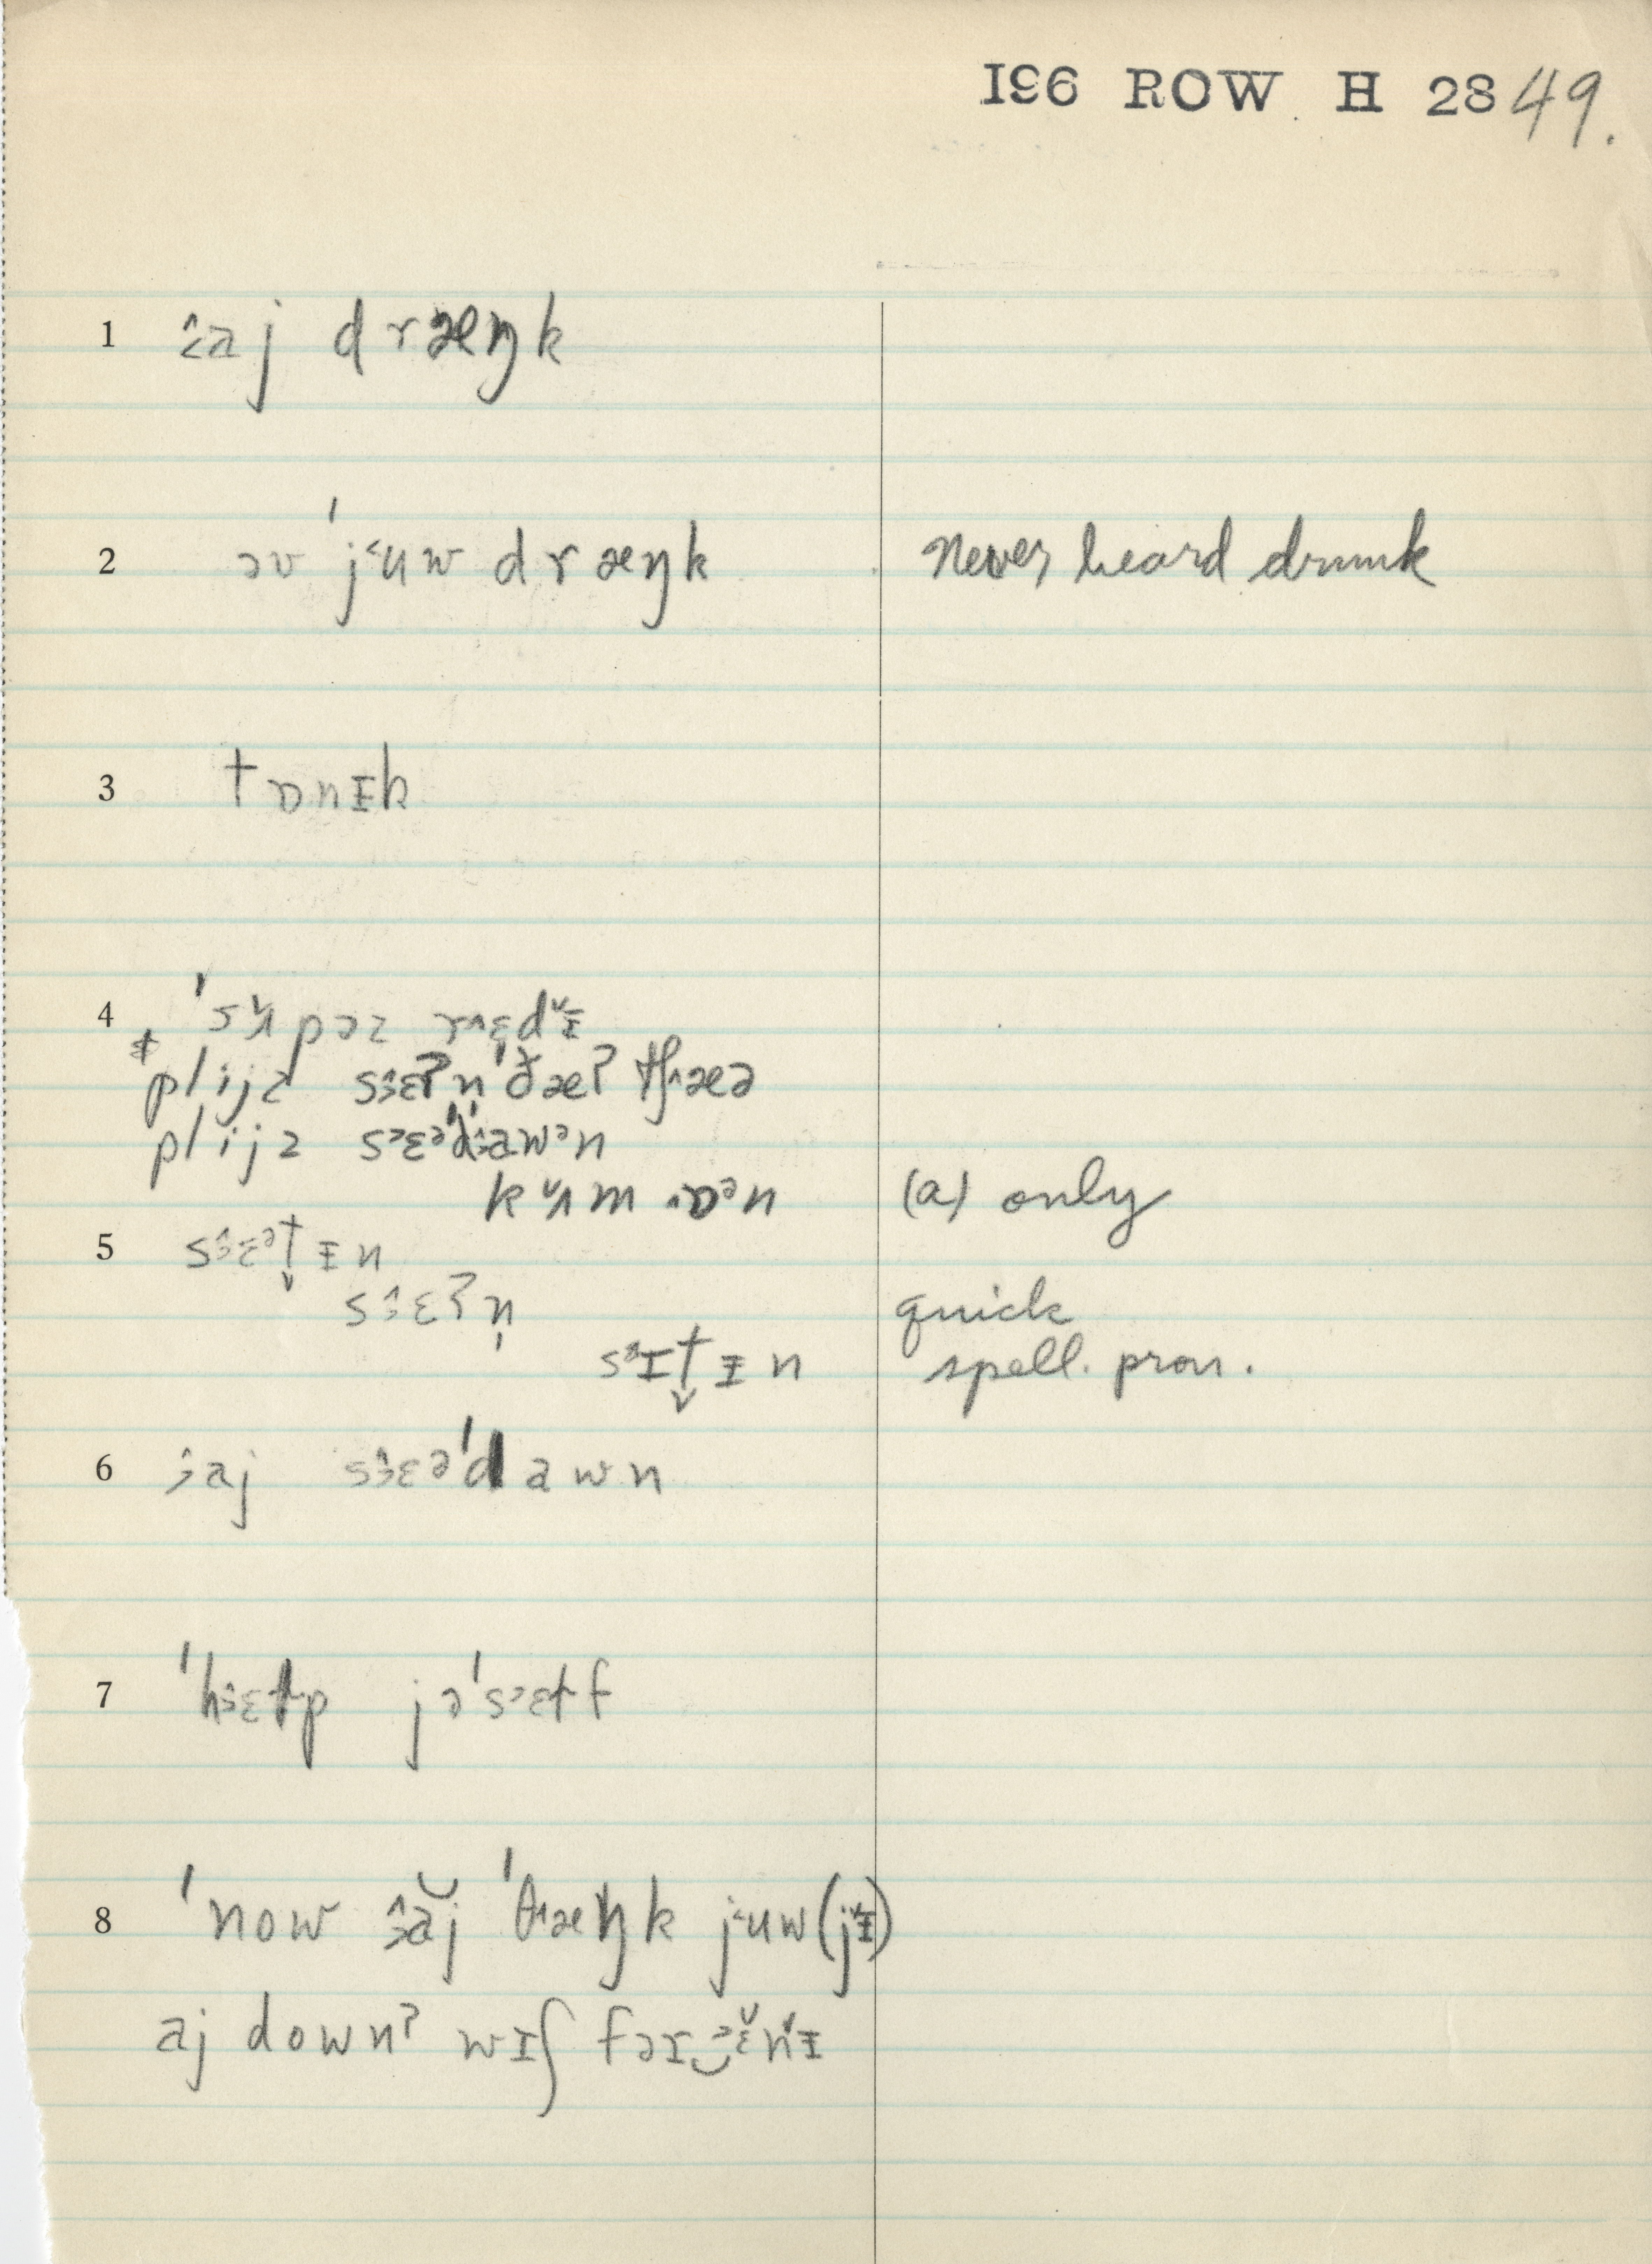 196 ROW H 28 49.
1 ɜ̂aj dræŋk
2 əv ˈj˂ʉw dræŋk never heard drunk
3 tɒnɪ̵k
4 ˈsʌ̌pəz r˄ɛdˇɪ̵
* plijz sɜ̂ɛʔn̩ ˈðæʔ tʃ˄æə
plijz sᵊɛəˈdɜ̂awᵊn
kʌ̌m ˄ɒᵊn (a) only
5 sɜ̂ɛᵊt̬ɪ̵n
sɜ̂ɛʔn̩ quick
sᵌɪt̬ɪ̵n spell. pron.
6 ɜ̂aj sɜ̂ɛəˈdawn
7 ˈhɜ̂ɛɫp jəˈsᵊɛɫf
8 ˈnow ɜ̂ăj ˈθ˄æŋk j˂ʉw (jˇɪ̵)
aj downʔ wɪʃ fər‿ᵊɛ̌nˇɪ̵